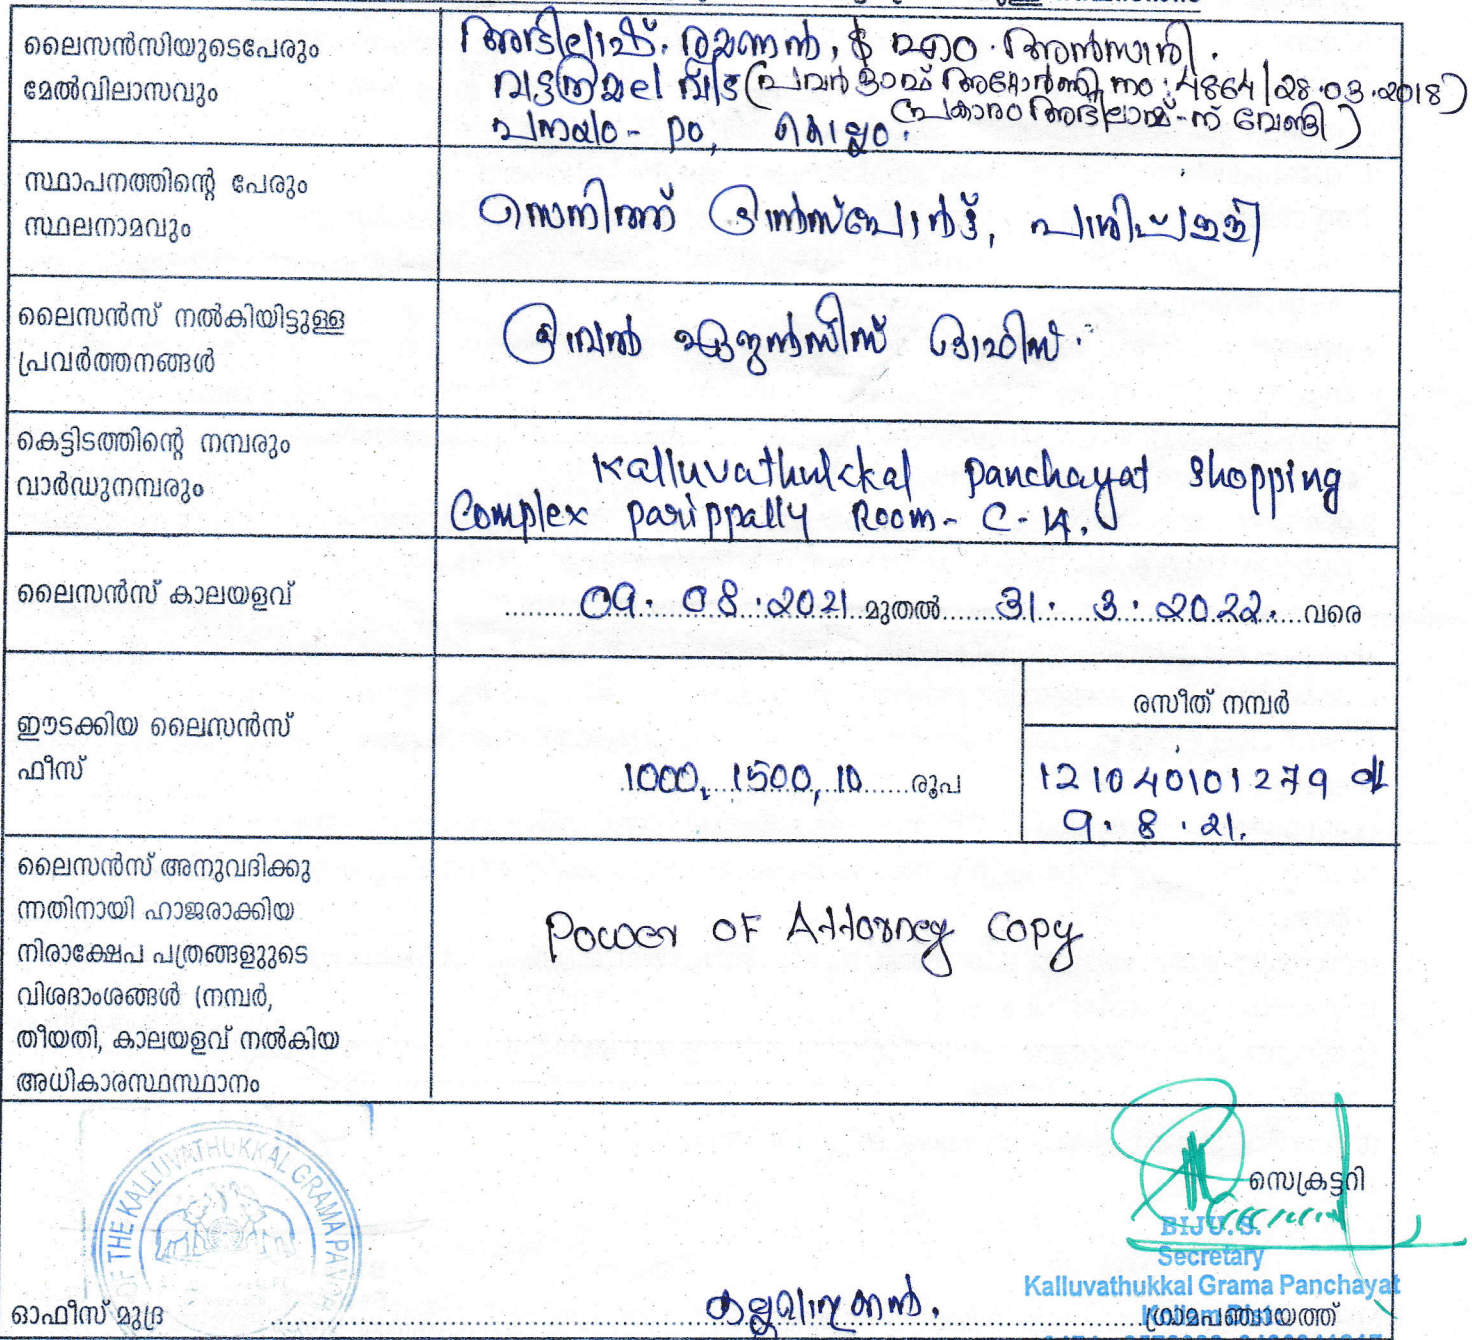 ലൈസൻസിയുടെപേരും
മേൽവിലാസവും
അഭിലാഷ്. രമണൻ, S എം. അൻസാരി.
വട്ടത്രാമല വീട് (പവർ ഓഫ് അറ്റോർണി no: 4864/28.03.2018)
പ്രകാരം അഭിലാഷ്-ന് വേണ്ടി)
പനയം - PO, കൊല്ലം.
സ്ഥാപനത്തിന്റെ പേരും
സ്ഥലനാമവും
സെനിത്ത് ട്രാൻസ്പോർട്ട്, പാരിപ്പള്ളി
ലൈസൻസ് നൽകിയിട്ടുള്ള
പ്രവർത്തനങ്ങൾ
ട്രാവൽ ഏജൻസീസ് ഓഫീസ്.
കെട്ടിടത്തിന്റെ നമ്പരും
വാർഡുനമ്പരും
Kalluvathukkal panchayat shopping
Complex parippally Room- C-14.
ലൈസൻസ് കാലയളവ്
09. 08. 2021 മുതൽ 31. 3. 2022. വരെ
ഈടക്കിയ ലൈസൻസ്
ഫീസ്
1000, 1500, 10 രൂപ
രസീത് നമ്പർ
121040101279
9. 8. 21.
ലൈസൻസ് അനുവദിക്കു
ന്നതിനായി ഹാജരാക്കിയ
നിരാക്ഷേപ പത്രങ്ങളുടെ
വിശദാംശങ്ങൾ (നമ്പർ,
തീയതി, കാലയളവ് നൽകിയ
അധികാരസ്ഥസ്ഥാനം
Power OF Attorney Copy
OF THE KALLUVATHUKKAL GRAMA PAN
സെക്രട്ടറി
BIJU.S.
Secretary
Kalluvathukkal Grama Panchayat
Kollam Dist
ഓഫീസ് മുദ്ര
കല്ലുവാതുക്കൽ. ഗ്രാമപഞ്ചായത്ത്